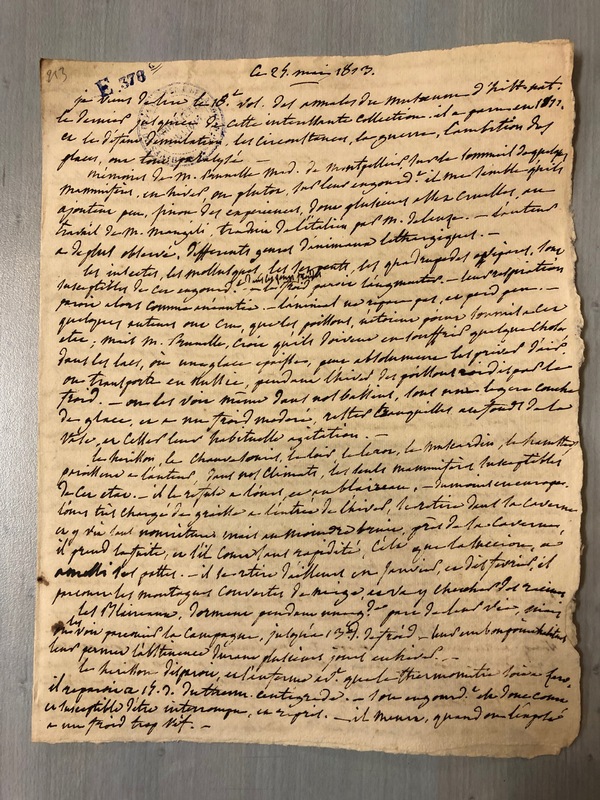 213
E. 376 c
Ce 24. mai 1813.
je viens de lire le 18e vol. des annales du museum d'hist. nat.
le dernier jusqu'ici de cette interessante collection. il a paru en 1811.
et le défaut d'émulation, les circonstances, la guerre, l'ambition des
places, ont tout paralysé —
mémoires de M. Prunelle Med. de Montpellier sur le sommeil de quelques
mammifères, en hiver ou plutot, sur leur engourd.t il me semble qu'ils
ajoutent peu, sinon des expériences, dont plusieurs assez cruelles, au
travail de M. Mangili, traduit de l'italien par M. deleuze. — l'auteur
a de plus observé, differents genres d'animaux lethargiques. —
les insectes, les mollusques, les serpents, les quadrupedes ovipares, sont
susceptibles de cet engourd.t — le froid paroit l'augmenter. — leur respiration
paroit alors comme anéantie. — l'animal ne digere pas, et perd peu. —
quelques auteurs ont cru, que les poissons, n'étoient point soumis à cet
etat; mais M. Prunelle, croit qu'ils doivent en souffrir quelque chose
dans les lacs, où une glace épaisse, peut absolument les priver d'air
on transporte en Russie, pendant l'hiver des poissons roidis par le
froid. — on les voit même dans nos bassins, sous une legere couche
de glace, et a un froid modéré, rester tranquilles au fond de la
vase, et cesser leur habituelle agitation. —
le herisson, la chauve souris, le loir, le lerot, le muscardin, le hamster
paroissent a l'auteur, dans nos climats, les seuls mammifères susceptibles
de cet etat. — il le refuse a l'ours, et au blaireau, — du moins en europe.
l'ours très chargé de graisse a l'entrée de l'hiver, se retire dans la caverne
et y vit sans nourriture mais au moindre bruit, près de la caverne,
il prend la fuite, et s'il court sans rapidité, c'est que la succion, a
amolli ses pattes. — il se retire d'ailleurs en janvier, et dès fevrier, il
parcourt les montagnes couvertes de neige, et va y chercher des racines
pendant
jusqu'à 13 d. de froid —
leur permet l'abstinence durant plusieurs jours en hiver. —
que le thermomètre soit a zero,
il reparoit a 15. d. du therm. centigrade. — son engourd.t est donc court
et susceptible d'être interrompu, et repris. — il meurt, quand on l'expose
a un froid trop vif. —